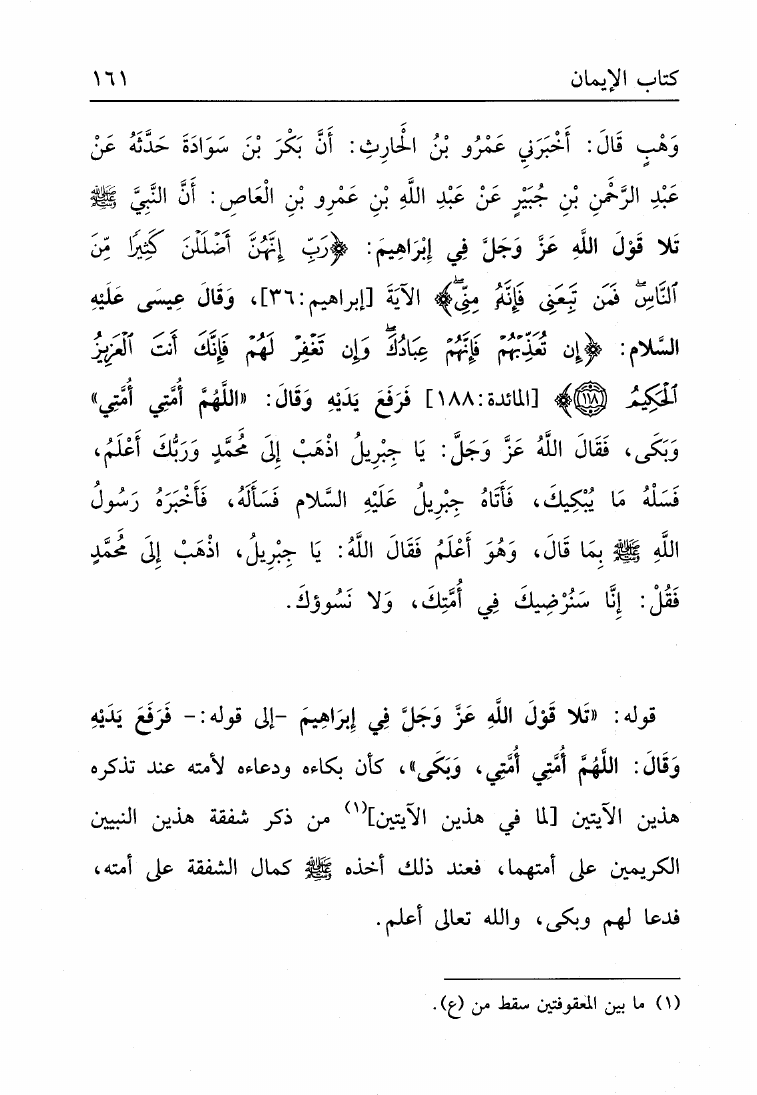 كتاب الإيمان ١٦١
وَهْبٍ قَالَ: أَخْبَرَنِي عَمْرُو بْنُ الْحَارِثِ: أَنَّ بَكْرَ بْنَ سَوَادَةَ حَدَّثَهُ عَنْ
عَبْدِ الرَّحْمٰنِ بْنِ جُبَيْرٍ عَنْ عَبْدِ اللَّهِ بْنِ عَمْرِو بْنِ الْعَاصِ: أَنَّ النَّبِيَّ ﷺ
تَلا قَوْلَ اللَّهِ عَزَّ وَجَلَّ فِي إِبْرَاهِيمَ: ﴿رَبِّ إِنَّهُنَّ أَضْلَلْنَ كَثِيرًا مِّنَ
ٱلنَّاسِۖ فَمَن تَبِعَنِي فَإِنَّهُۥ مِنِّيۖ﴾ الآيَةَ [إبراهيم:٣٦]، وَقَالَ عِيسَى عَلَيْهِ
السَّلام: ﴿إِن تُعَذِّبْهُمْ فَإِنَّهُمْ عِبَادُكَۖ وَإِن تَغْفِرْ لَهُمْ فَإِنَّكَ أَنتَ ٱلْعَزِيزُ
ٱلْحَكِيمُ ١١٨﴾ [المائدة:١٨٨] فَرَفَعَ يَدَيْهِ وَقَالَ: «اللَّهُمَّ أُمَّتِي أُمَّتِي»
وَبَكَى، فَقَالَ اللَّهُ عَزَّ وَجَلَّ: يَا جِبْرِيلُ اذْهَبْ إِلَى مُحَمَّدٍ وَرَبُّكَ أَعْلَمُ،
فَسَلْهُ مَا يُبْكِيكَ، فَأَتَاهُ جِبْرِيلُ عَلَيْهِ السَّلام فَسَأَلَهُ، فَأَخْبَرَهُ رَسُولُ
اللَّهِ ﷺ بِمَا قَالَ، وَهُوَ أَعْلَمُ فَقَالَ اللَّهُ: يَا جِبْرِيلُ، اذْهَبْ إِلَى مُحَمَّدٍ
فَقُلْ: إِنَّا سَنُرْضِيكَ فِي أُمَّتِكَ، وَلا نَسُوؤكَ.
قوله: «تَلا قَوْلَ اللَّهِ عَزَّ وَجَلَّ فِي إِبرَاهِيمَ -إلى قوله:- فَرَفَعَ يَدَيْهِ
وَقَالَ: اللَّهُمَّ أُمَّتِي أُمَّتِي، وَبَكَى»، كأن بكاءه ودعاءه لأمته عند تذكره
هذين الآيتين [لما في هذين الآيتين](١) من ذكر شفقة هذين النبيين
الكريمين على أمتهما، فعند ذلك أخذه ﷺ كمال الشفقة على أمته،
فدعا لهم وبكى، والله تعالى أعلم.
(١) ما بين المعقوفتين سقط من (ع).